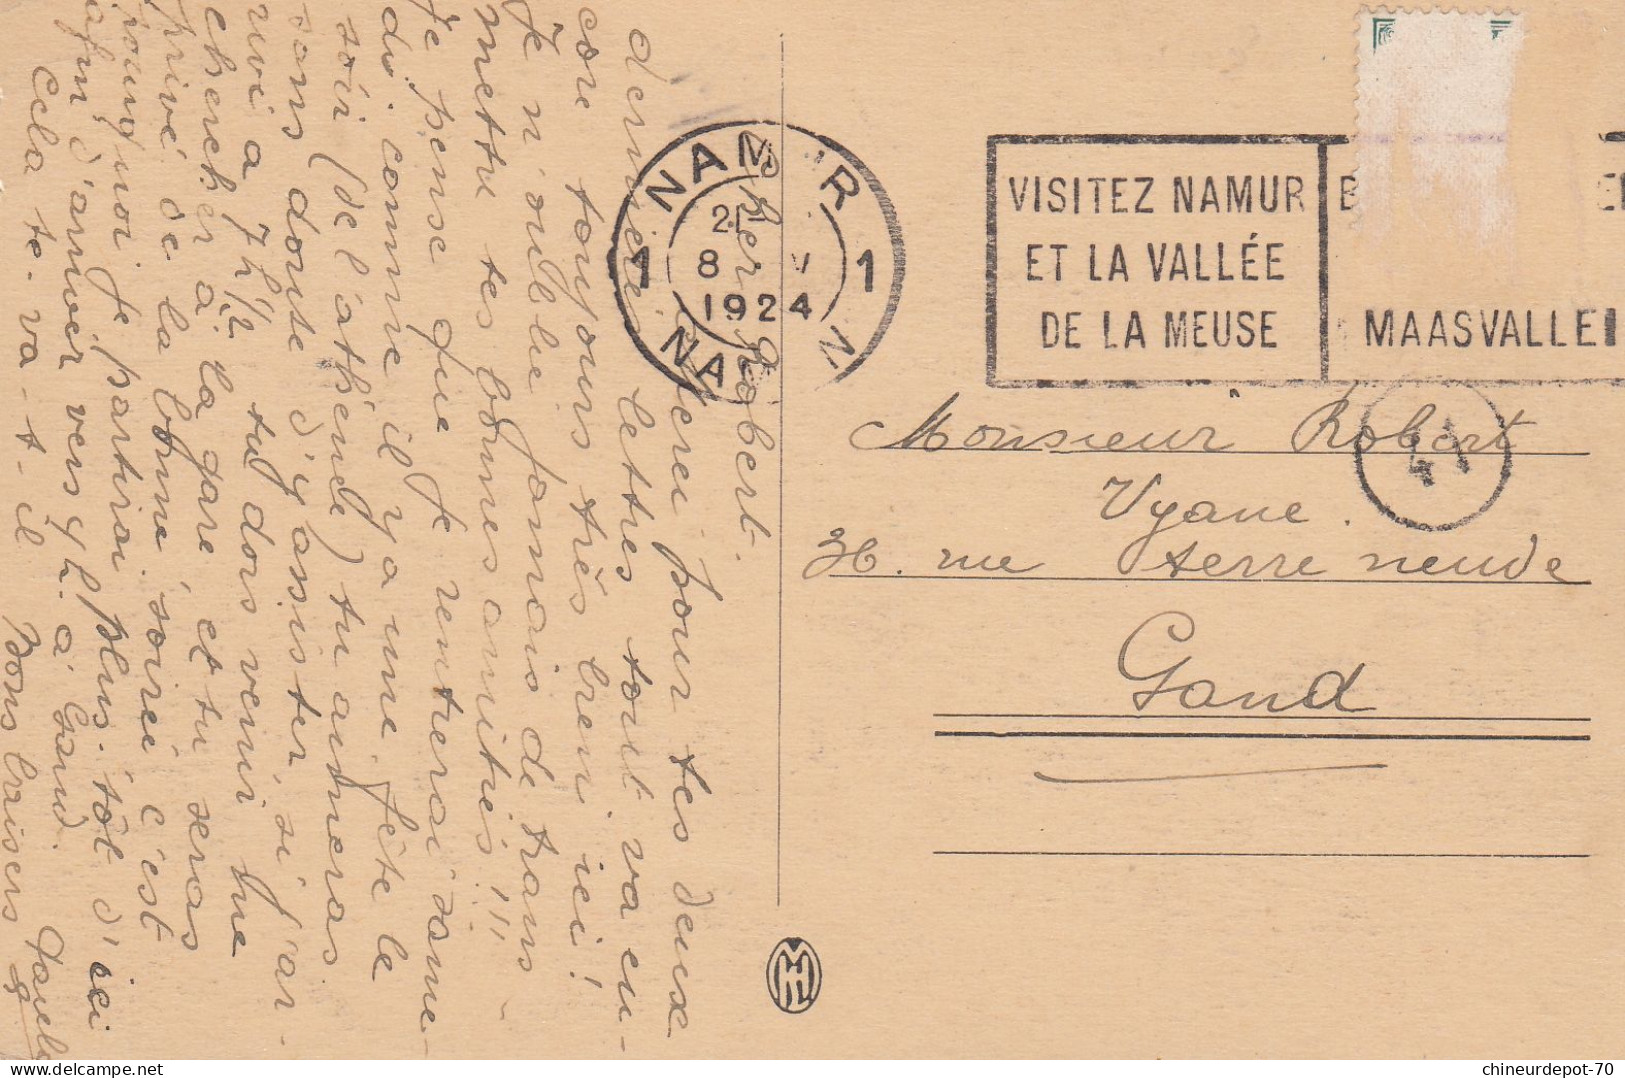 Cher Robert.
Merci pour tes deux
dernières lettres tout va en-
core toujours très bien ici!
Je n'oublie jamais de trans-
mettre tes bonnes amitiés!!!
Je pense que je rentrerai same-
di comme il y a une fête le
soir (de l'athénée) tu aimeras
sans doute d'y assister si j'ar-
rive a 7h 1/2 tu dois venir me
chercher à la gare et tu seras
privé de la bonne soirée c'est
pourquoi je partirai plus tôt d'ici
afin d'arriver vers 4h. à Gand.
Cela te-va-t-il Bons baisers
Paula
NAMUR
1 1
21
8 V
1924
NA
VISITEZ NAMUR
ET LA VALLÉE
DE LA MEUSE
MAASVALLEI
41
Monsieur Robert
Vyane.
36. rue terre neuve
Gand
chineurdepot-70